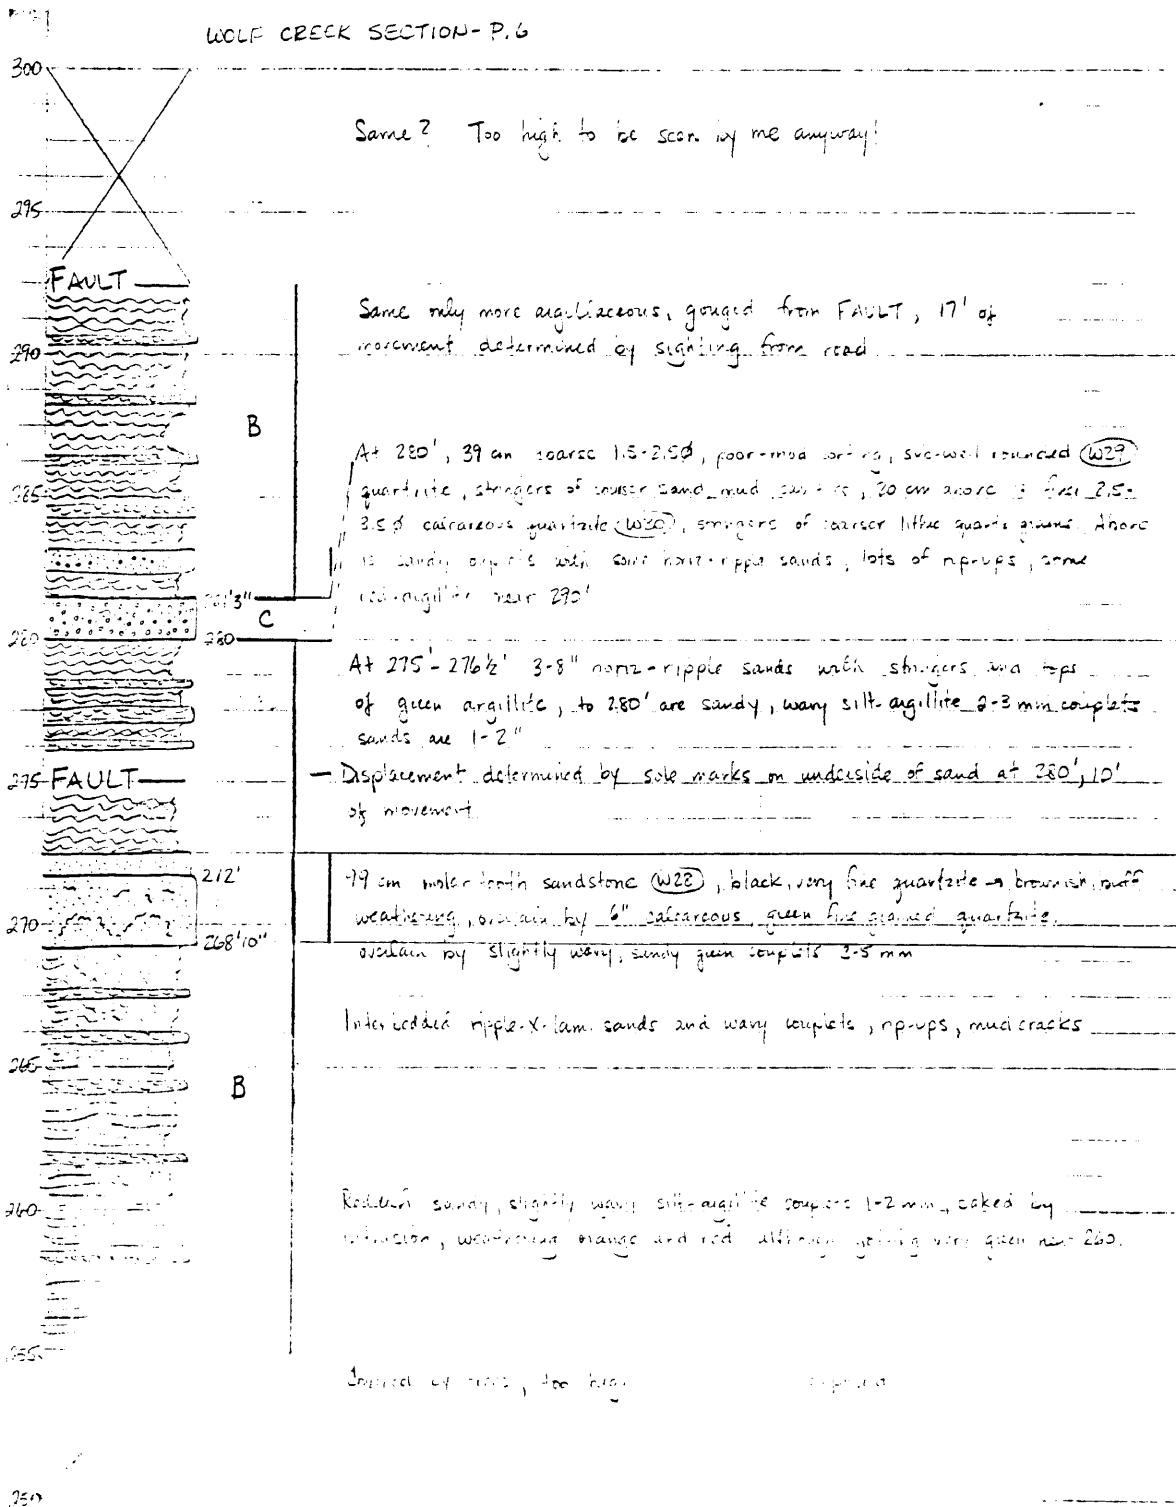 WOLF CREEK SECTION - P. 6
300
Same? Too high to be seen by me anyway!
295
FAULT
Same only more argillaceous, gouged from FAULT, 17' of
290
movement determined by sighting from road
B
At 280', 39 cm coarse 1.5-2.5Ø, poor-mod sorting, sub-well rounded W29
285
quartzite, stringers of coarser sand, mud, 20 cm above is finer 2.5-
3.5Ø calcareous quartzite W30, stringers of coarser lithic quartz grains. Above
is sandy couplets with some horiz-ripple sands, lots of rip-ups, some
281'3"
red-argillite near 290'
C
280
280
At 275'-276½' 3-8" horiz-ripple sands with stringers and tops
of green argillite, to 280' are sandy, wavy silt-argillite 2-3 mm couplets
sands are 1-2"
275 FAULT
- Displacement determined by sole marks on underside of sand at 280', 10'
of movement
272'
79 cm molar tooth sandstone W28, black, very fine quartzite → brownish, buff
weathering, overlain by 6" calcareous, green fine grained quartzite.
270
268'10"
overlain by slightly wavy, sandy green couplets 2-5 mm
Interbedded ripple-x-lam. sands and wavy couplets, rip-ups, mudcracks
265
B
260
Reddish sandy, slightly wavy silt-argillite couplets 1-2 mm, caked by
intrusion, weathering orange and red although getting very green near 260.
255
Covered by trees, too high
250